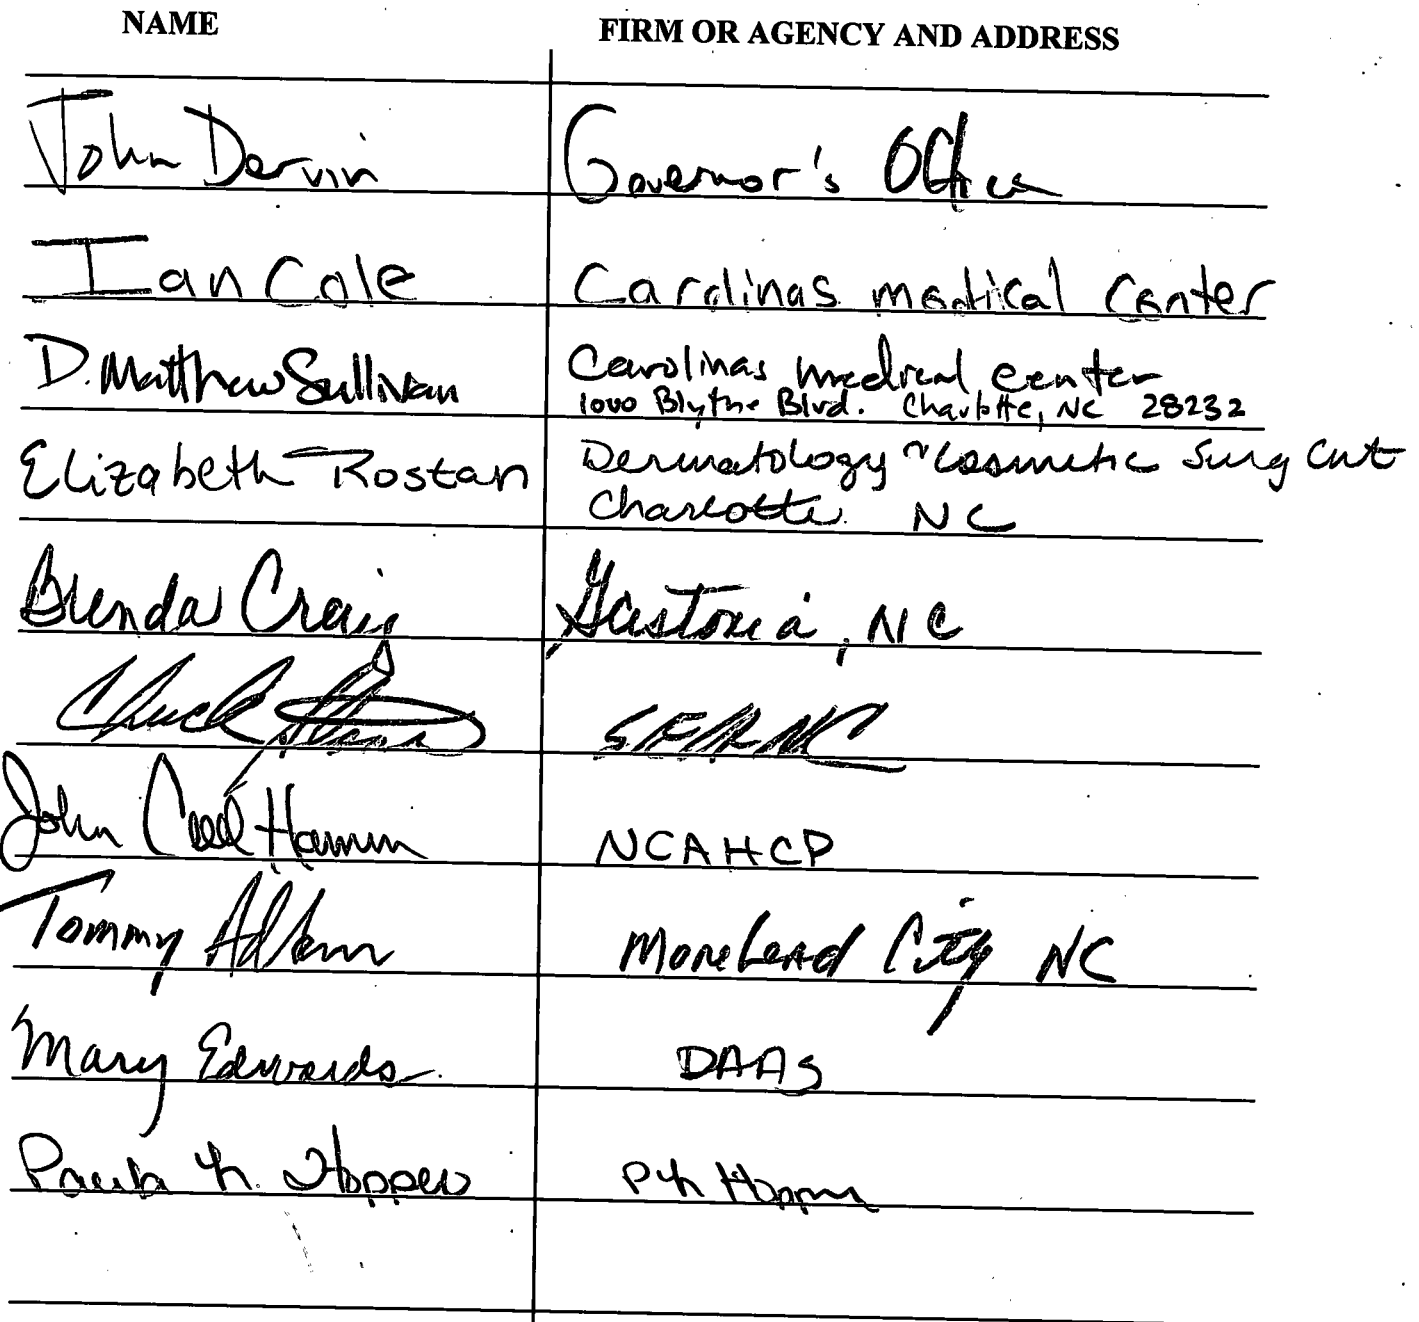 NAME FIRM OR AGENCY AND ADDRESS
John Dervin Governor's Office
Ian Cole Carolinas medical Center
D. Matthew Sullivan Carolinas medical center
1000 Blythe Blvd. Charlotte, NC 28232
Elizabeth Rostan Dermatology ~ Cosmetic Surg Cnt
Charlotte NC
Brenda Craig Gastonia, NC
Chuck SEANC
John Hamm NCAHCP
Tommy Morehead City NC
Mary Edwards DAAS
Paula Hopper